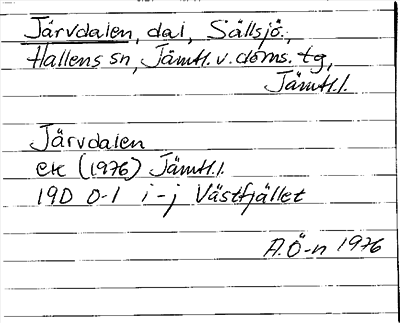 Järvdalen, dal, Sällsjö.,
Hallens sn, Jämtl. v. doms. tg,
Jämtl. l.
Järvdalen
ek (1976) Jämtl. l.
19D 0-1 i-j Västfjället
A.Ö-n 1976